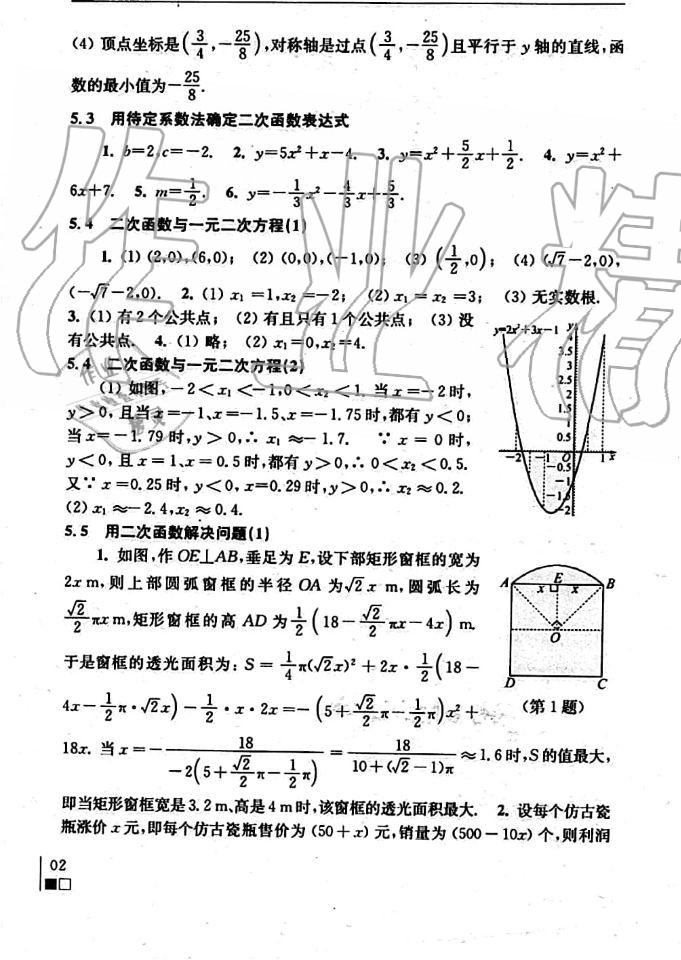 (4) 顶点坐标是(3/4,-25/8),对称轴是过点(3/4,-25/8)且平行于 y 轴的直线,函
数的最小值为-25/8.
5.3 用待定系数法确定二次函数表达式
1. b=2,c=-2. 2. y=5x²+x-4. 3. y=x²+5/2x+1/2. 4. y=x²+
6x+7. 5. m=1/2. 6. y=-1/3x²-4/3x+5/3.
5.4 二次函数与一元二次方程(1)
1. (1) (2,0),(6,0); (2) (0,0),(-1,0); (3) (1/2,0); (4) (√7-2,0),
(-√7-2,0). 2. (1) x₁=1,x₂=-2; (2) x₁=x₂=3; (3) 无实数根.
3. (1) 有2个公共点; (2) 有且只有1个公共点; (3) 没
有公共点. 4. (1) 略; (2) x₁=0,x₂=4.
5.4 二次函数与一元二次方程(2)
(1) 如图,-2<x₁<-1,0<x₂<1. 当 x=-2时,
y>0,且当x=-1、x=-1.5、x=-1.75时,都有 y<0;
当x=-1.79时,y>0,∴ x₁≈-1.7. ∵ x=0时,
y<0,且 x=1、x=0.5时,都有 y>0,∴ 0<x₂<0.5.
又∵ x=0.25时,y<0,x=0.29时,y>0,∴ x₂≈0.2.
(2) x₁≈-2.4,x₂≈0.4.
y=2x²+3x-1 y
4
3.5
3
2.5
2
1.5
1
0.5
-2 -1 O 1 x
-0.5
-1
-1.5
-2
5.5 用二次函数解决问题(1)
1. 如图,作 OE⊥AB,垂足为 E,设下部矩形窗框的宽为
2x m,则上部圆弧窗框的半径 OA 为√2x m,圆弧长为
√2/2πx m,矩形窗框的高 AD 为1/2(18-√2/2πx-4x) m.
于是窗框的透光面积为:S=1/4π(√2x)²+2x·1/2(18-
4x-1/2π·√2x)-1/2·x·2x=-(5+√2/2π-1/2π)x²+
18x. 当 x=-18/-2(5+√2/2π-1/2π)=18/10+(√2-1)π≈1.6时,S的值最大,
A E B
x x
O
D C
(第1题)
即当矩形窗框宽是3.2 m、高是4 m时,该窗框的透光面积最大. 2. 设每个仿古瓷
瓶涨价 x 元,即每个仿古瓷瓶售价为(50+x)元,销量为(500-10x)个,则利润
02
作业精